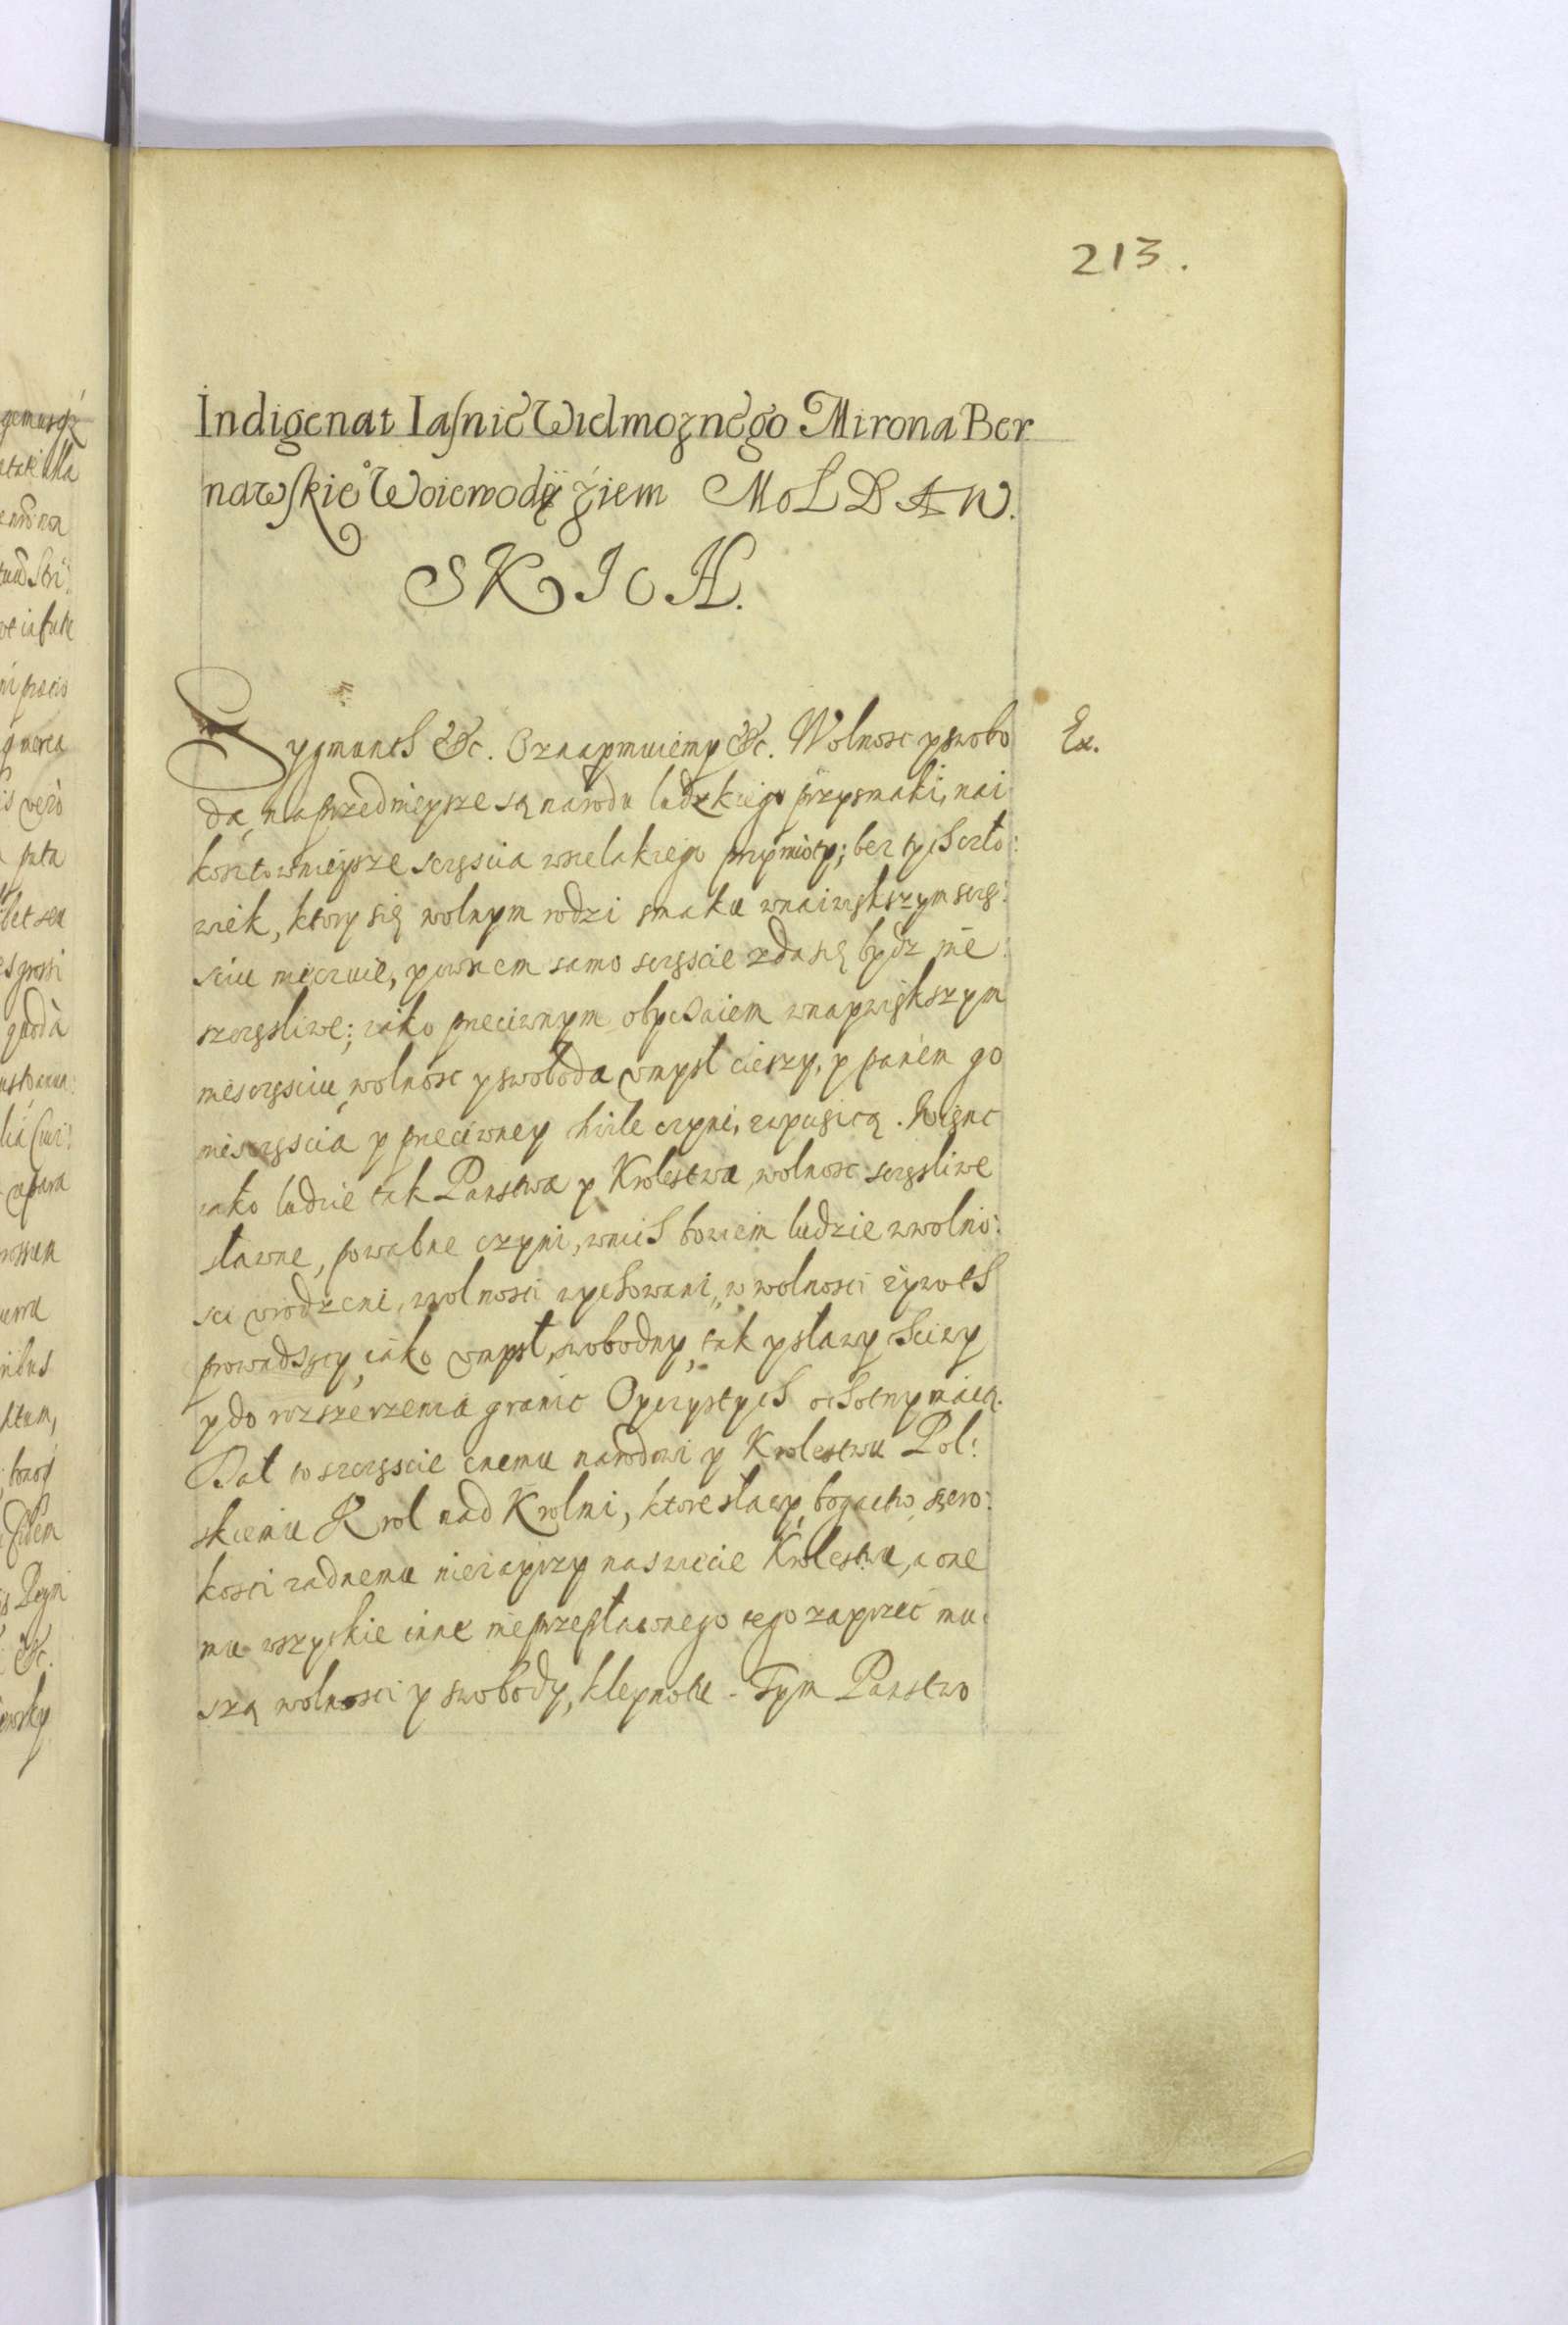 213.
Indigenat Iasnie Wielmożnego Mirona Ber
nawskieº Woiewody ziem MOLDAW.
SKICH.
Zygmunth &c. Oznaymuiemy &c. Wolnosc y swobo
Ex.
da, naprzednieysze są narodu ludzkiego przysmaki, nai
kosztownieysze sczęscia wszelakiego przymioty; bez tych czło:
wiek, ktory się wolnym rodzi smaku wnaiwiększym sczę:
sciu nieczuie, y owszem samo sczęscie zda się bydz nie
szczęsliwe; iako przeciwnym obyczaiem wnaywiększym
niesczęsciu, wolnosc y swoboda vmysł cieszy, y panem go
niesczęscia y przeciwney chwile czyni,
iako ludzie tak Panstwa y Krolestwa, wolnosc sczęsliwe
sławne, powabne czyni, wnich bowiem ludzie wwolno:
sci vrodzeni, wwolnosci wychowani, w wolnosci zywoth
prowadzący, iako vmysł swobodny, tak y sławy chciwy
y do rozszerzenia granic Oyczystych ochotny maią.
Dał to szczęscie cnemu narodowi y Krolestwu Pol:
skiemu Krol nad Krolmi, ktore sławy, bogactw, szero:
kosci zadnemu niezayrzy naswiecie Krolestwu, a one
mu wszyskie inne nieprzepłaconego tego zayrzec mu:
szą wolnosci y swobody, kleynotu. Tym Panstwo